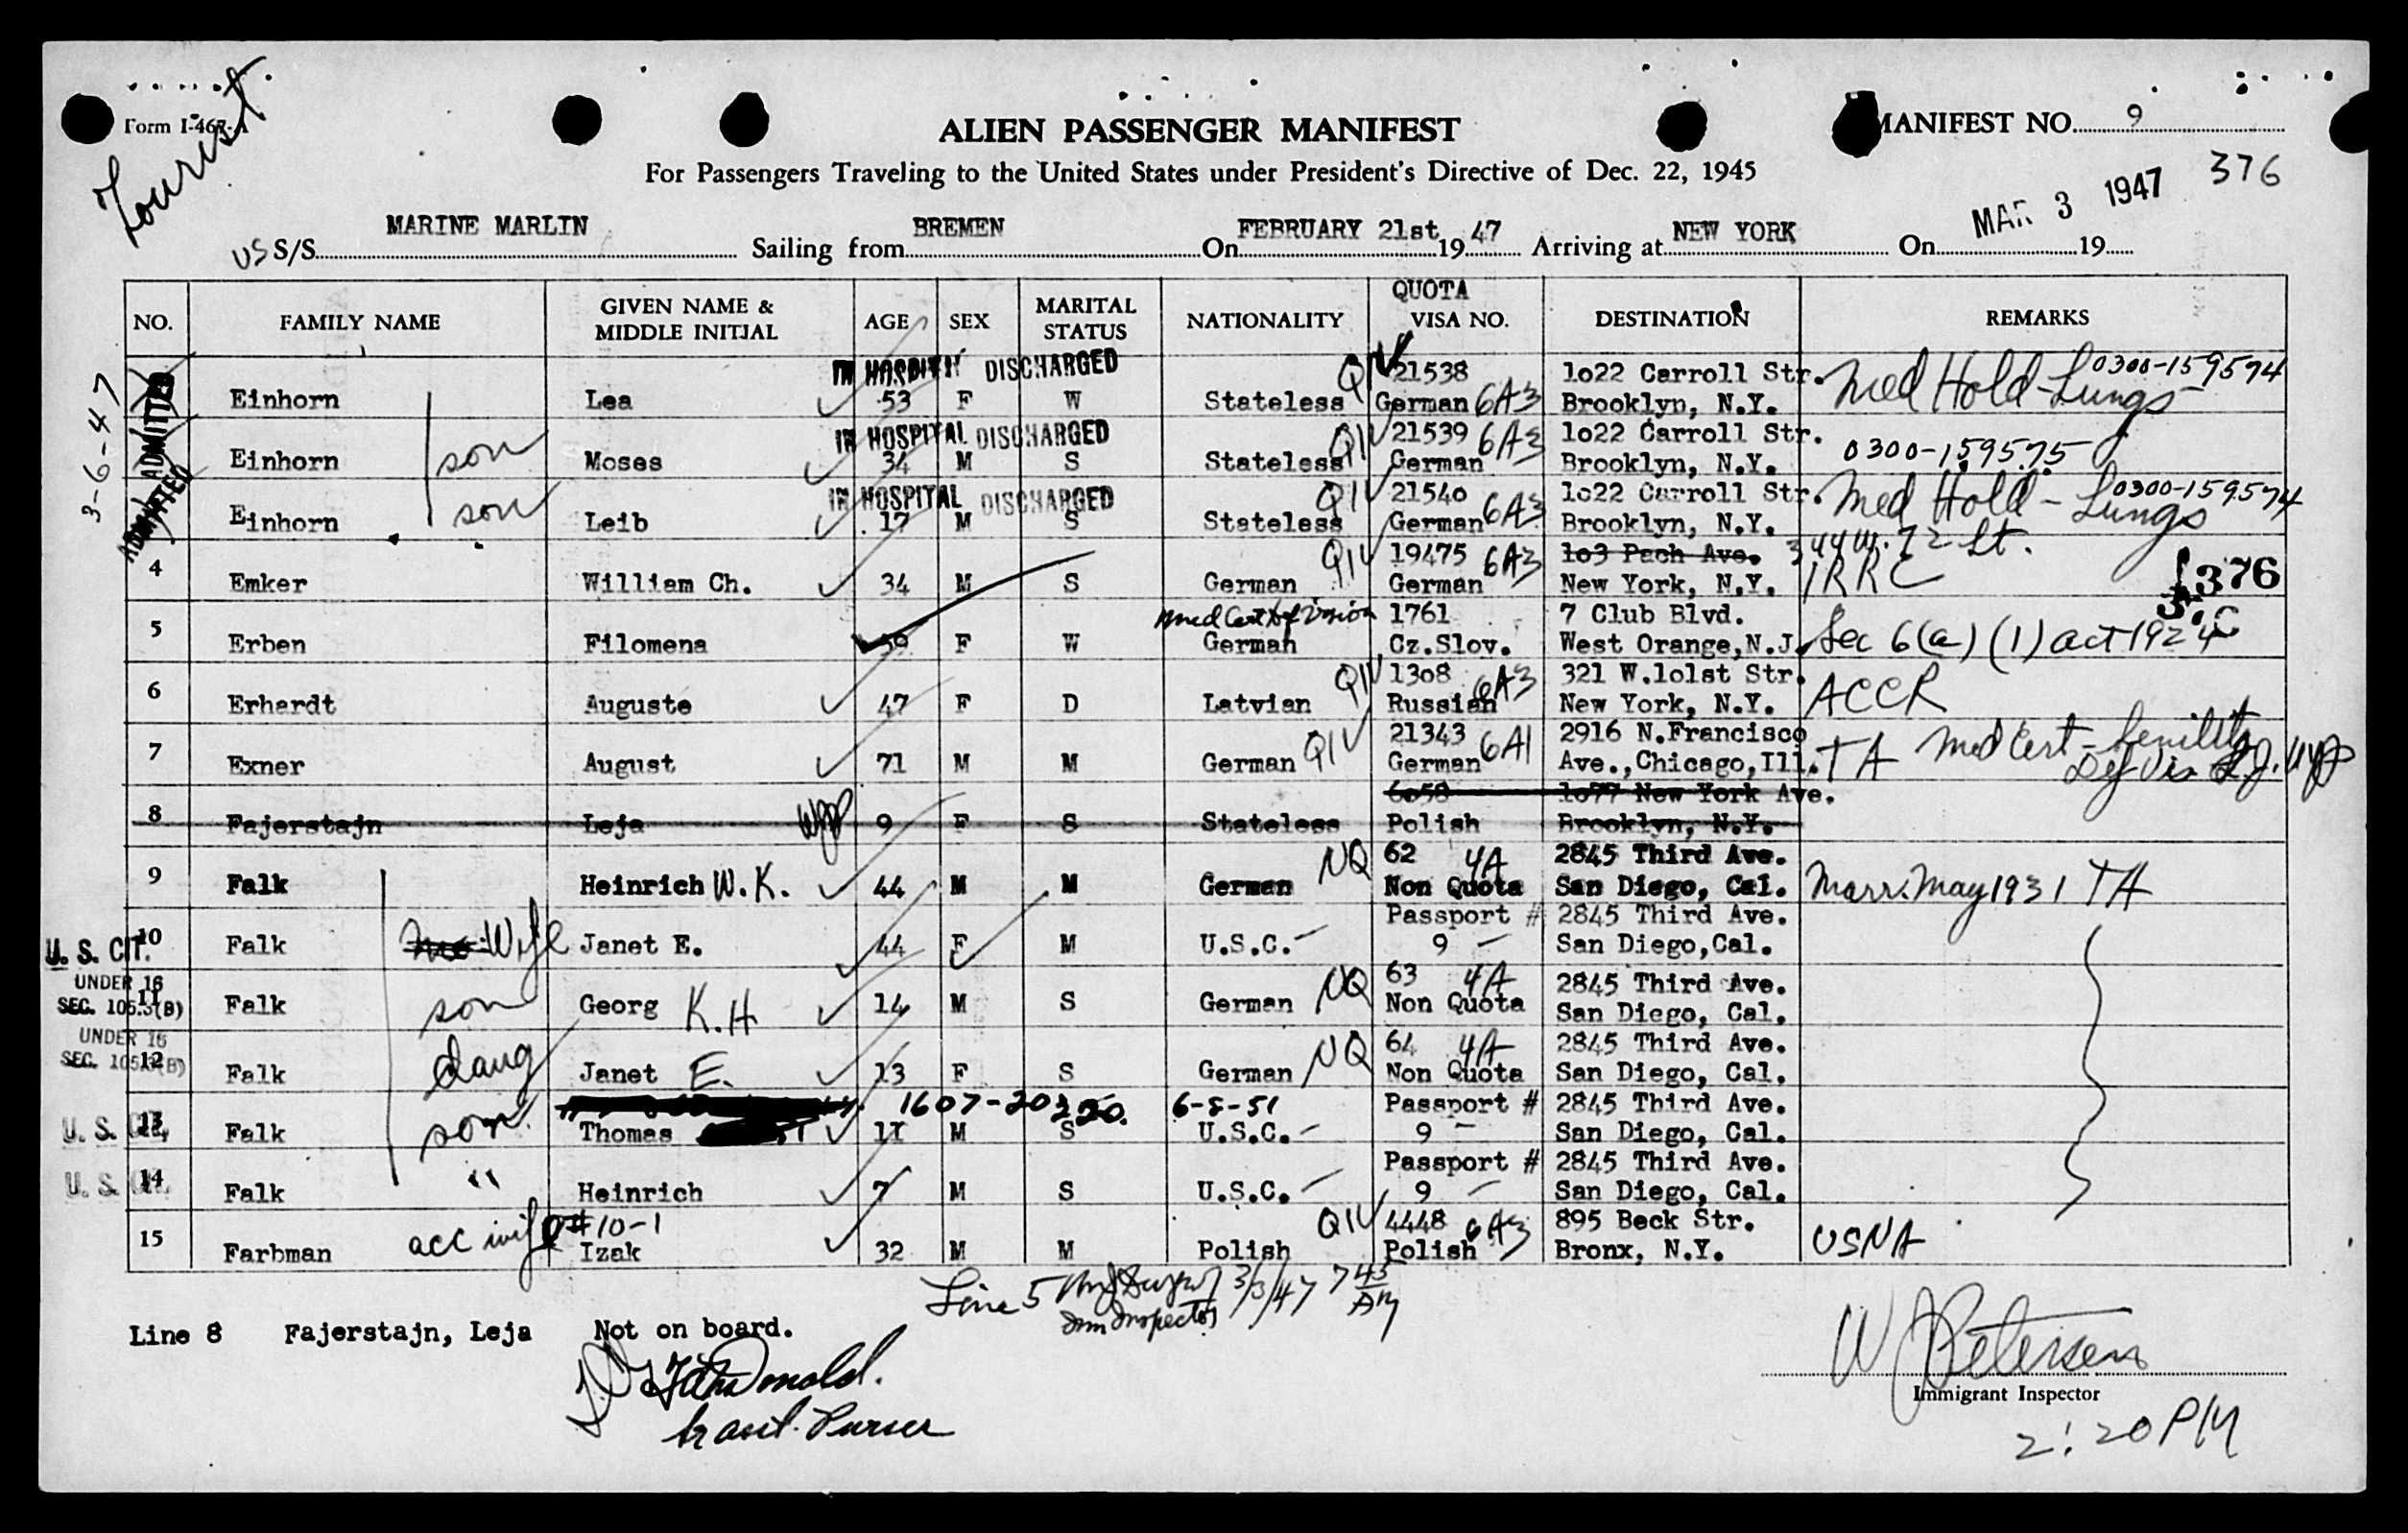 Tourist.
Form I-467-A
ALIEN PASSENGER MANIFEST
MANIFEST NO. 9
For Passengers Traveling to the United States under President's Directive of Dec. 22, 1945
376
MAR 3 1947
US S/S MARINE MARLIN Sailing from BREMEN On FEBRUARY 21st 19 47 Arriving at NEW YORK On 19
NO. FAMILY NAME GIVEN NAME & MIDDLE INITIAL AGE SEX MARITAL STATUS NATIONALITY QUOTA VISA NO. DESTINATION REMARKS
3-6-47
ADMITTED
ADMITTED
IN HOSPITAL DISCHARGED
QIV 21538 1o22 Carroll Str. 0300-159574
Einhorn Lea 53 F W Stateless German 6A3 Brooklyn, N.Y. Med Hold - Lungs
IN HOSPITAL DISCHARGED
QIV 21539 6A3 1o22 Carroll Str.
Einhorn son Moses 34 M S Stateless German Brooklyn, N.Y. 0300-159575
IN HOSPITAL DISCHARGED
QIV 2154o 6A3 1o22 Carroll Str. 0300-159574
Einhorn son Leib 17 M S Stateless German Brooklyn, N.Y. Med Hold - Lungs
4 QIV 19475 6A3 1o3 Pach Ave. 344 W. 72 St.
Emker William Ch. 34 M S German German New York, N.Y. IRRC
376
5 Med Cert Def Vision 1761 7 Club Blvd.
Erben Filomena 59 F W German Cz.Slov. West Orange,N.J. Sec 6(a)(1) act 1924
6 QIV 13o8 6A3 321 W.1o1st Str.
Erhardt Auguste 47 F D Latvian Russian New York, N.Y. ACCR
7 QIV 21343 6A1 2916 N.Francisco
Exner August 71 M M German German Ave.,Chicago,Ill. TA Med Cert - Senility
Def Vis
8 6o58 1o77 New York Ave.
Fajerstajn Leja 9 F S Stateless Polish Brooklyn, N.Y.
9 NQ 62 4A 2845 Third Ave.
Falk Heinrich W.K. 44 M M German Non Quota San Diego, Cal. Marr. May 1931 TA
U. S. CIT. 10 Passport # 2845 Third Ave.
Falk Wife Janet E. 44 F M U.S.C. - 9 - San Diego,Cal.
UNDER 16
SEC. 105.3(B)
11 NQ 63 4A 2845 Third Ave.
Falk son Georg K.H 14 M S German Non Quota San Diego, Cal.
UNDER 16
SEC. 105.3(B)
12 NQ 64 4A 2845 Third Ave.
Falk daug Janet E. 13 F S German Non Quota San Diego, Cal.
6-8-51
U. S. CIT. 13 Passport # 2845 Third Ave.
Falk son Thomas 11 M S U.S.C. - 9 - San Diego, Cal.
U. S. CIT. 14 Passport # 2845 Third Ave.
Falk " Heinrich 7 M S U.S.C. - 9 - San Diego, Cal.
15 #10-1 QIV 4448 6A3 895 Beck Str.
Farbman acc wife Izak 32 M M Polish Polish Bronx, N.Y. USNA
Line 5 3/3/47 7 45 AM
Imm Inspector
Line 8 Fajerstajn, Leja Not on board.
Purser
W Petersen
Immigrant Inspector
2:20 PM